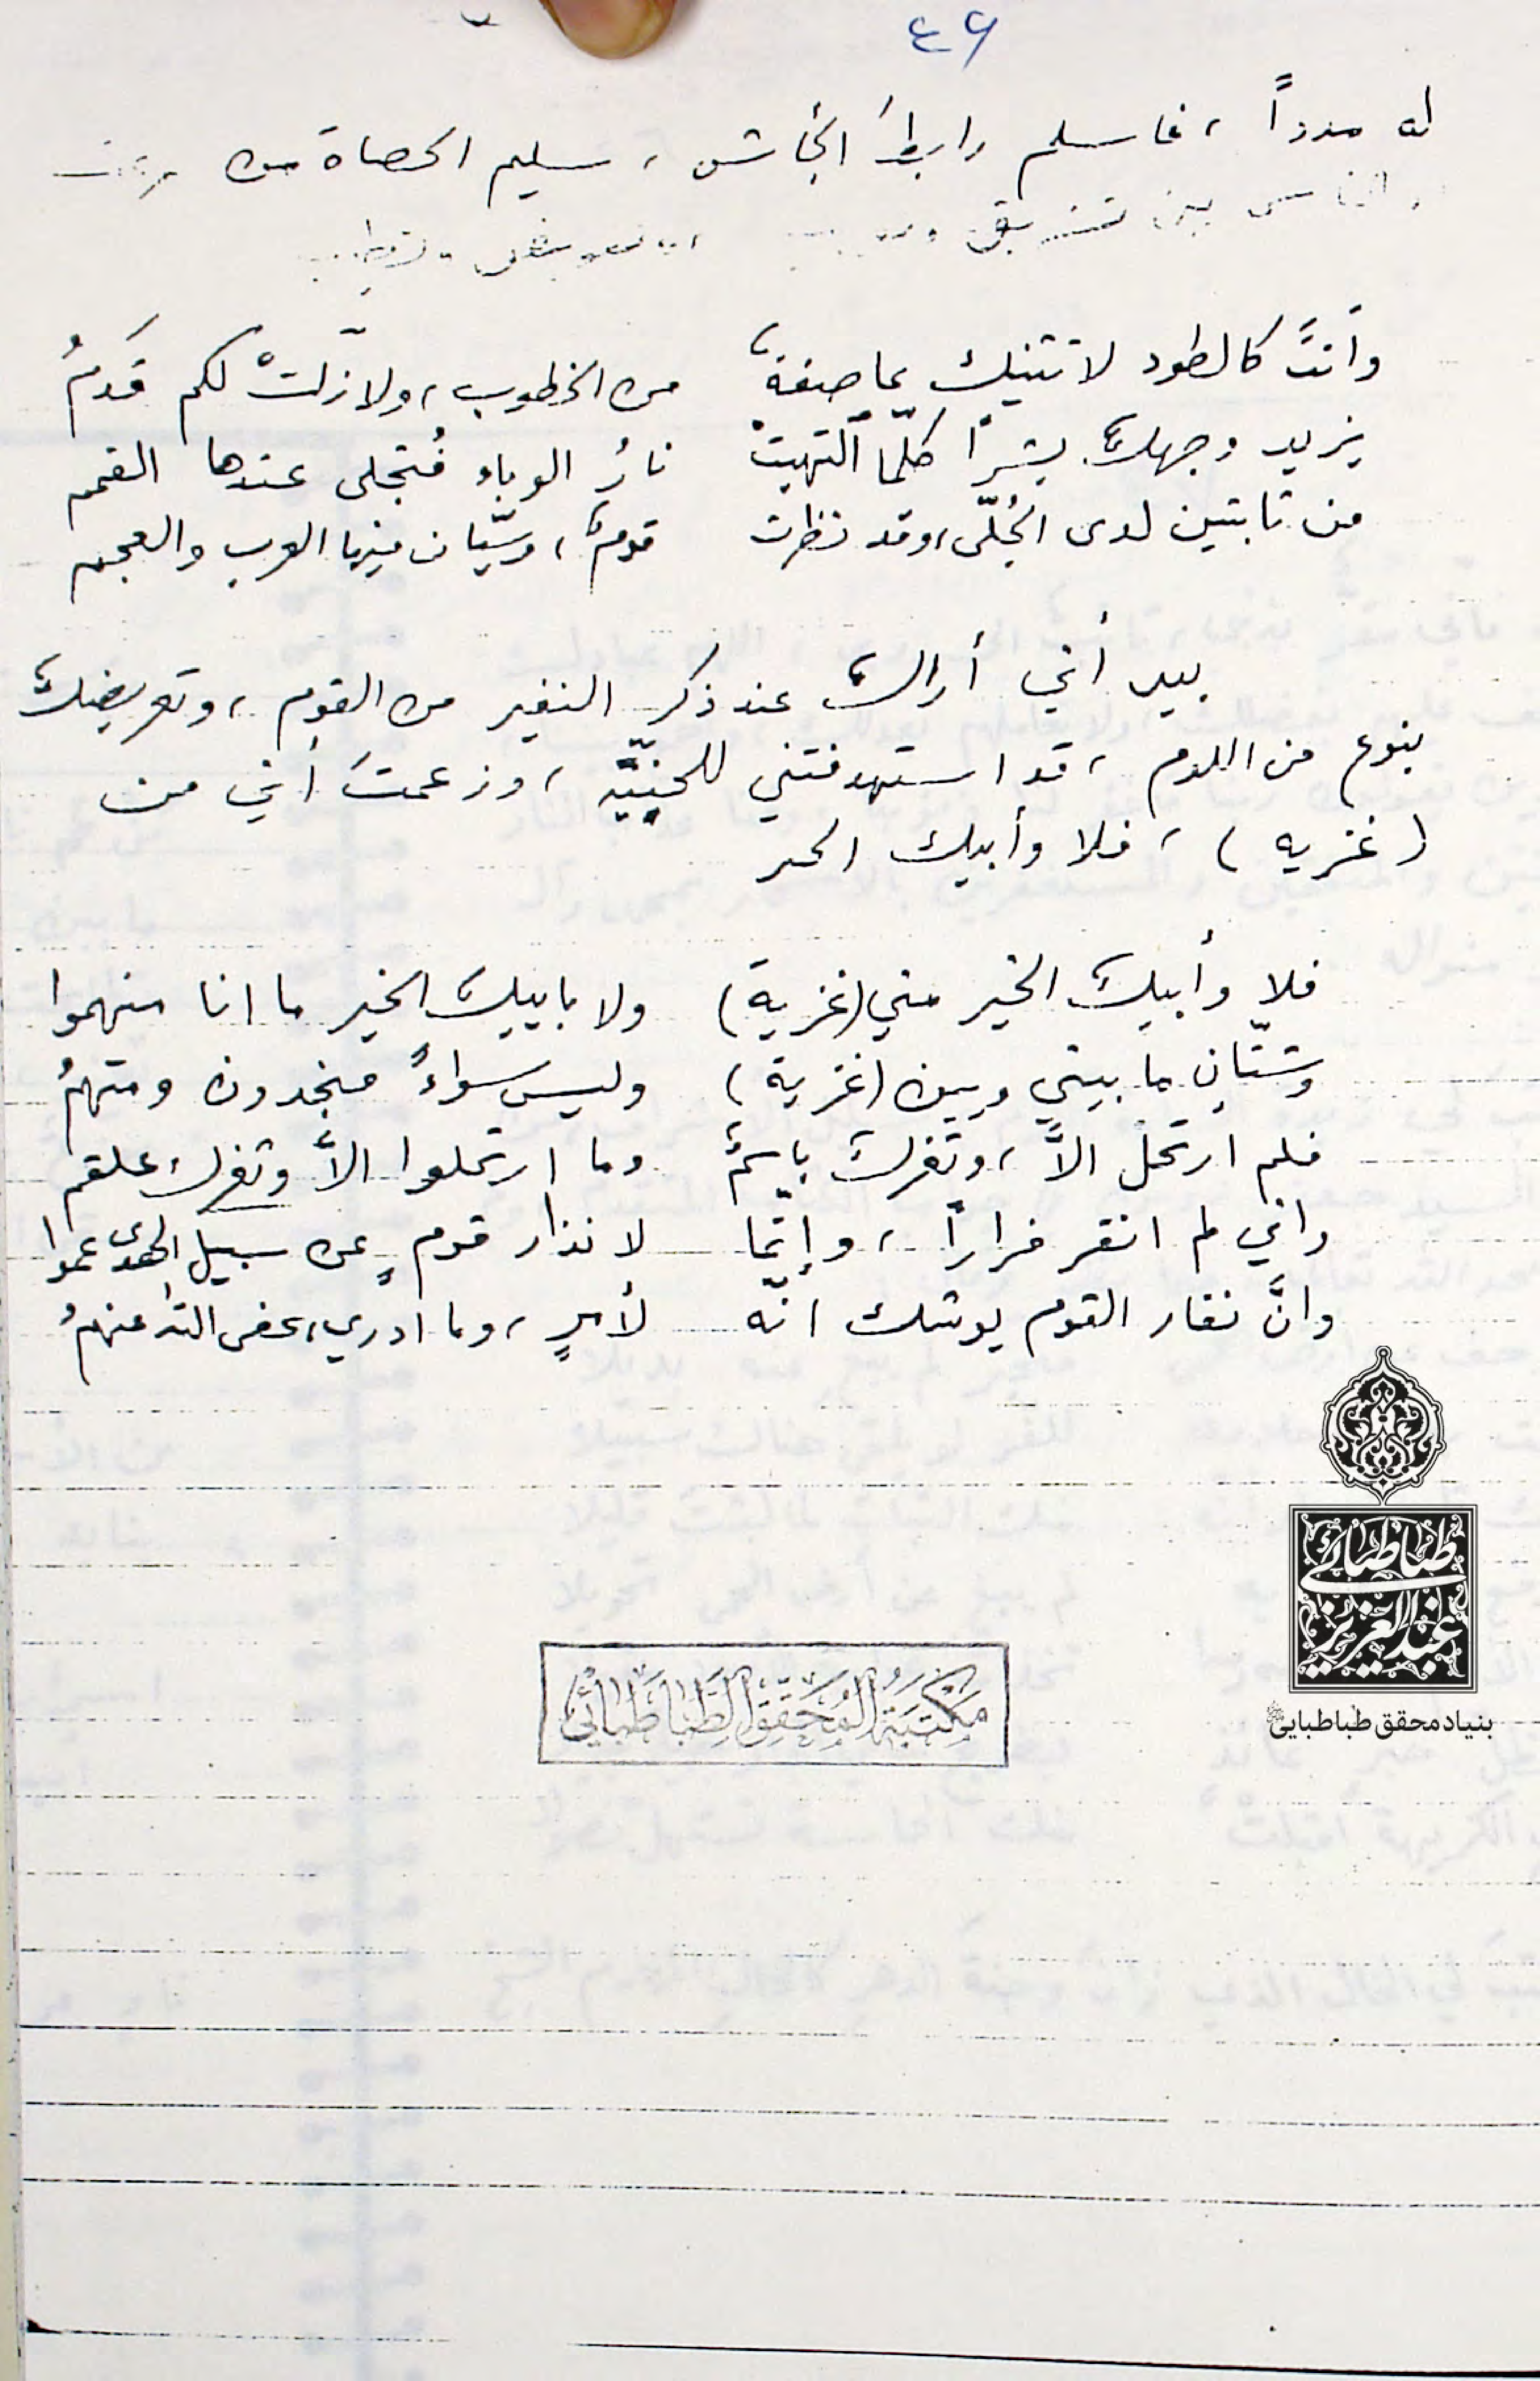 ٤٦
له مدداً ، فاسلم رابطَ الجأش ، سليم الحصاة من
الناس بين تشريق
وأنتَ كالطود لا تثنيك عاصفةٌ من الخطوب ، ولا زلّتْ لكم قَدَمُ
يزيد وجهك بشراً كلّما ألتهبتْ نارُ الوباء فُتجلى عندها الغمم
من ثابتين لدى الجُلّى ، وقد نظرت قومٌ ، وسيّان فيها العرب والعجم
بيد أني أراك عند ذكر النفير من القوم ، وتعريضك
بنوع من اللوم ، قد استهدفتني ، وزعمتَ أني من
( غزيه ) ، فلا وأبيك الخير
فلا وأبيك الخير مني (غزية) ولا بابيك الخير ما انا منهموا
وشتّان ما بيني وبين (غزية) وليس سواءً منجدون ومتهمُ
فلم ارتحل الاَّ ، وثغرك باسمٌ وما ارتحلوا الاَّ وثغرك علقم
واني لم انفر فراراً ، وإنّما لانذار قومٍ عن سبيل الهدى عموا
وانَّ نفار القوم يوشك انّه لأمرٍ ، وما ادري ، عفى الله عنهمُ
طباطبائی
عبدالعزیز
بنیاد محقق طباطبایی
مَكتَبَةُ المُحَقِّقِ الطَّباطَبائي